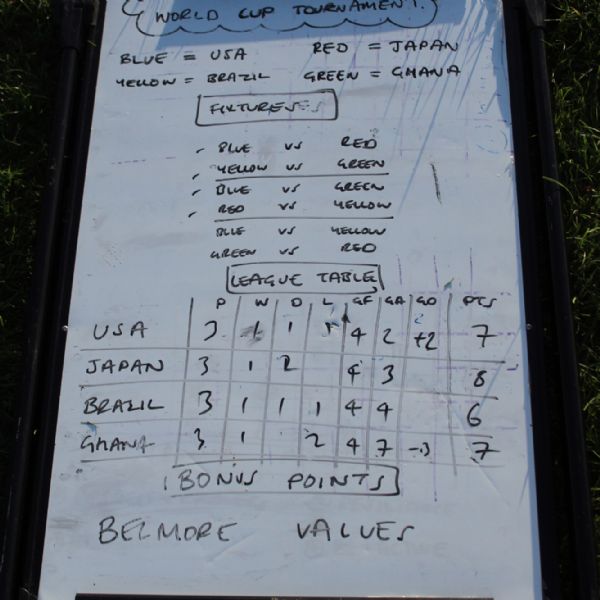 WORLD CUP TOURNAMENT.
BLUE = USA RED = JAPAN
YELLOW = BRAZIL GREEN = GHANA
FIXTURESES
BLUE VS RED
YELLOW VS GREEN
BLUE VS GREEN
RED VS YELLOW
BLUE VS YELLOW
GREEN VS RED
LEAGUE TABLE
P W D L GF GA GD PTS
USA 3 1 1 1 4 2 +2 7
JAPAN 3 1 2 4 3 8
BRAZIL 3 1 1 1 4 4 6
GHANA 3 1 2 4 7 -3 7
BONUS POINTS
BELMORE VALUES